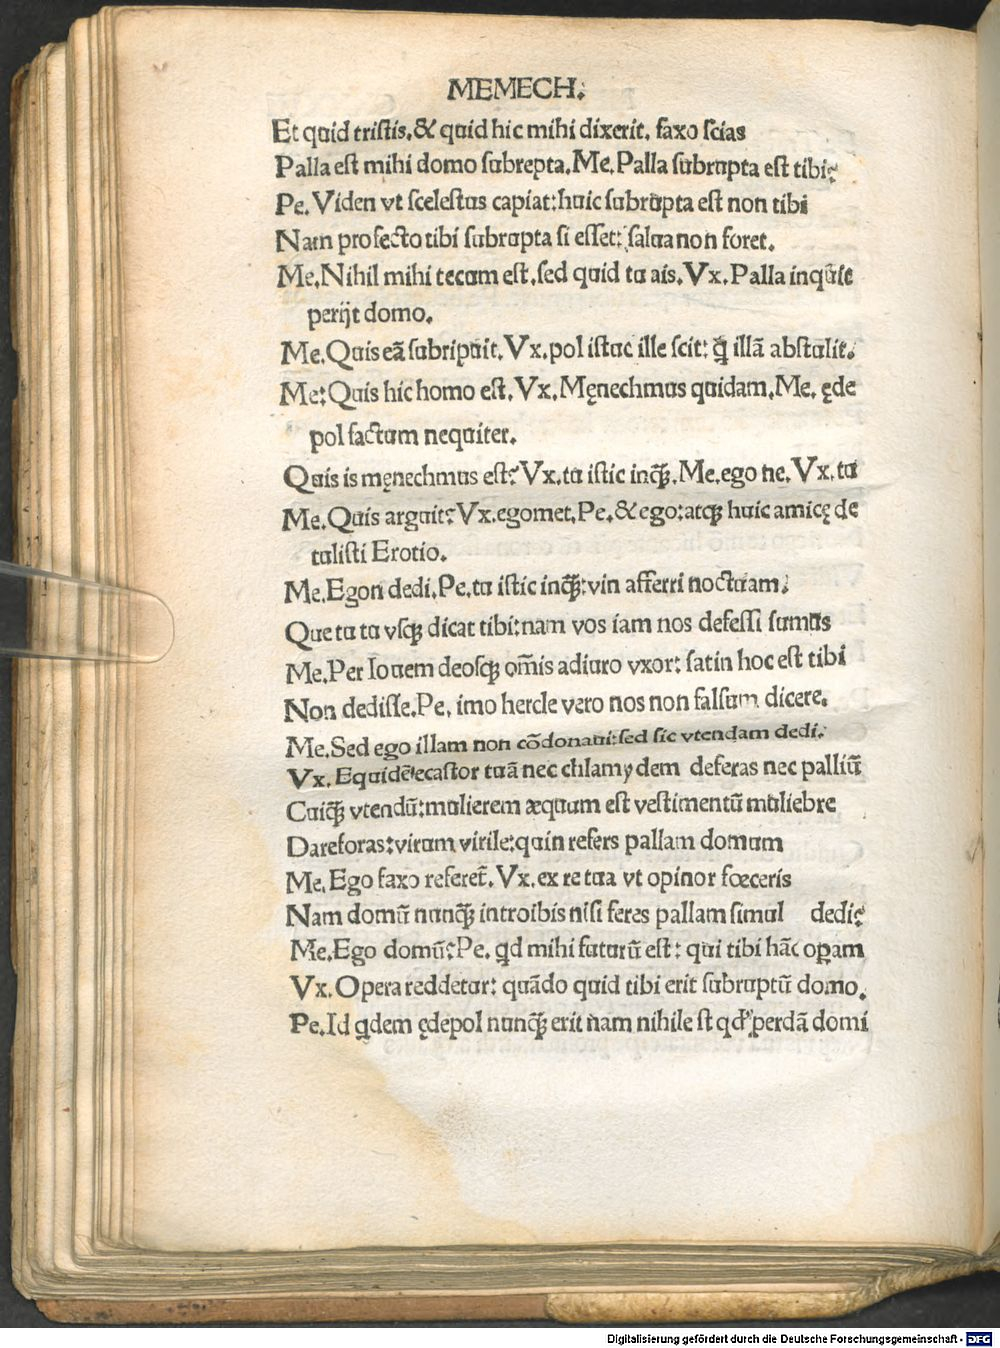 MEMECH.
Et quid tristis.& quid hic mihi dixerit. faxo scias
Palla est mihi domo subrepta.Me.Palla subrupta est tibi?
Pe.Viden vt scelestus capiat:huic subrupta est non tibi
Nam profecto tibi subrupta si esset: salua non foret.
Me.Nihil mihi tecum est.sed quid tu ais.Vx.Palla inquā
perijt domo.
Me.Quis eā subripuit.Vx.pol istuc ille scit: q̄ illā abstulit.
Me:Quis hic homo est.Vx.Męnechmus quidam.Me. ęde
pol factum nequiter.
Quis is męnechmus est?Vx.tu istic inqꝫ.Me.ego ne.Vx.tu
Me.Quis arguit?Vx.egomet.Pe.& ego:atqꝫ huic amicę de
tulisti Erotio.
Me.Egon dedi.Pe.tu istic inqꝫ:vin afferri noctuam.
Que tu tu vsqꝫ dicat tibi:nam vos iam nos defessi sumus
Me.Per Iouem deosqꝫ om̄is adiuro vxor: satin hoc est tibi
Non dedisse.Pe. imo hercle vero nos non falsum dicere.
Me.Sed ego illam non cōdonaui:sed sic vtendam dedi.
Vx.Equidē ecastor tuā nec chlamydem deferas nec palliū
Cuiqꝫ vtendū:mulierem æquum est vestimentū muliebre
Dare foras:virum virile:quin refers pallam domum
Me.Ego faxo referet̄.Vx.ex re tua vt opinor fœceris
Nam domū nunqꝫ introibis nisi feres pallam simul dedi?
Me.Ego domū?Pe. qd mihi futurū est: qui tibi hāc oꝑam
Vx.Opera reddetur: quādo quid tibi erit subruptū domo.
Pe.Id qdem ędepol nunqꝫ erit nam nihile st qd' perdā domi
Digitalisierung gefördert durch die Deutsche Forschungsgemeinschaft - DFG